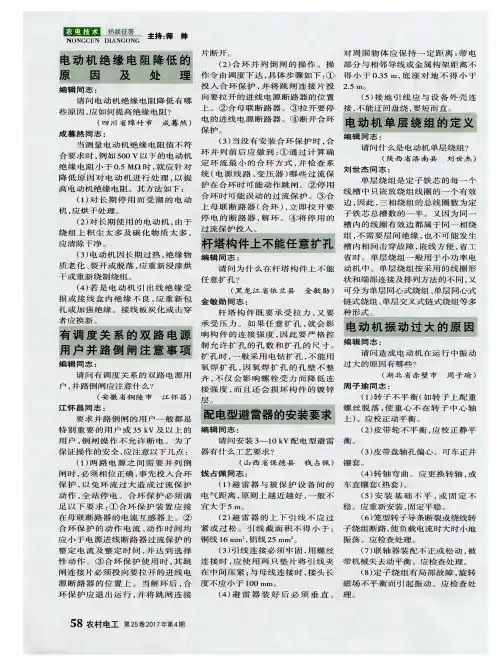 农电技术 热线征答 主持:师 帅
NONGCUN DIANGONG
电动机绝缘电阻降低的
原因及处理
编辑同志:
请问电动机绝缘电阻降低有哪
些原因,应如何提高绝缘电阻?
(四川省绵竹市 成蓦然)
成蓦然同志:
当测量电动机绝缘电阻值不符
合要求时,例如500 V以下的电动机
绝缘电阻小于0.5 MΩ时,就应针对
降低原因对电动机进行处理,以提
高电动机绝缘电阻。其方法如下:
(1)对长期停用而受潮的电动
机,应烘干处理。
(2)对长期使用的电动机,由于
绕组上积尘太多及碳化物质太多,
应清除干净。
(3)电动机因长期过热,绝缘物
质老化、裂开或脱落,应重新浸漆烘
干或重新绕制绕组。
(4)若是电动机引出线绝缘受
损或接线盒内绝缘不良,应重新包
扎或加强绝缘。接线板炭化或击穿
者应换新。
有调度关系的双路电源
用户并路倒闸注意事项
编辑同志:
请问有调度关系的双路电源用
户,并路倒闸应注意什么?
(安徽省铜陵市 江怀昌)
江怀昌同志:
要求并路倒闸的用户一般都是
特别重要的用户或35 kV及以上的
用户,倒闸操作不允许断电。为了
保证操作的安全,应注意以下几点:
(1)两路电源之间需要并列倒
闸时,必须相位正确,事先投入合环
保护,以免环流过大造成过流保护
动作,全站停电。合环保护必须满
足以下要求:①合环保护装置应接
在母联断路器的电流互感器上。②
合环保护的动作电流、动作时间均
应小于电源进线断路器过流保护的
整定电流及整定时间,并达到选择
性动作。③合环保护使用时,其跳
闸连接片必须投向要拉开的进线电
源断路器的位置上。当解环后,合
环保护应退出运行,并将跳闸连接
片断开。
(2)合环并列倒闸的操作。操
作令由调度下达,具体步骤如下:①
投入合环保护,并将跳闸连接片投
向要拉开的进线电源断路器的位置
上。②合母联断路器。③拉开要停
电的电源断路器。④断开合环
保护。
(3)当没有安装合环保护时,合
环并列前后应做到:①通过计算确
定环流最小的合环方式,并检查系
统(电源线路、变压器)哪些过流保
护在合环时可能动作跳闸。②停用
合环时可能误动的过流保护。③合
上母联断路器(合环),立即拉开要
停电的断路器,解环。④将停用的
过流保护投入。
杆塔构件上不能任意扩孔
编辑同志:
请问为什么在杆塔构件上不能
任意扩孔?
(黑龙江省依兰县 金敏勋)
金敏勋同志:
杆塔构件既要承受拉力,又要
承受压力。如果任意扩孔,就会影
响构件的连接强度,因此要严格控
制允许扩孔的孔数和扩孔的尺寸。
扩孔时,一般采用电钻扩孔,不能用
氧焊扩孔,因氧焊扩孔的孔壁不整
齐,不仅会影响螺栓受力而降低连
接强度,而且还会损坏构件的镀锌
层。
配电型避雷器的安装要求
编辑同志:
请问安装3—10 kV配电型避雷
器有什么工艺要求?
(山西省保德县 钱占佩)
钱占佩同志:
(1)避雷器与被保护设备间的
电气距离,原则上越近越好,一般不
宜大于5 m。
(2)避雷器的上下引线不应过
紧或过松。引线截面积不得小于:
铜线16 mm²,铝线25 mm²。
(3)引线连接必须牢固,用螺丝
连接时,应使用两只垫片将引线夹
在中间压紧;与母线连接时,接头长
度不应小于100 mm。
(4)避雷器装好后必须垂直。
对周围物体应保持一定距离:带电
部分与相邻导线或金属构架距离不
得小于0.35 m,底座对地不得小于
2.5 m。
(5)接地引线应与设备外壳连
接,不能迂回盘绕,要短而直。
电动机单层绕组的定义
编辑同志:
请问什么是电动机单层绕组?
(陕西省洛南县 刘世杰)
刘世杰同志:
单层绕组是定子铁芯的每一个
线槽中只嵌放绕组线圈的一个有效
边,因此,三相绕组的总线圈数为定
子铁芯总槽数的一半。又因为同一
槽内的线圈有效边都属于同一相绕
组,不需要层间绝缘,也不可能发生
槽内相间击穿故障,嵌线方便,省工
省时。单层绕组一般用于小功率电
动机中。单层绕组按采用的线圈形
状和端部连接及排列方法的不同,又
可分为单层同心式绕组、单层同心式
链式绕组、单层交叉式链式绕组等多
种形式。
电动机振动过大的原因
编辑同志:
请问造成电动机在运行中振动
过大的原因有哪些?
(湖北省赤壁市 周子瑜)
周子瑜同志:
(1)转子不平衡(如转子上配重
螺丝脱落,使重心不在转子中心轴
上)。应校正动平衡。
(2)皮带轮不平衡,应校正静平
衡。
(3)皮带盘轴孔偏心。可车正并
镶套。
(4)转轴弯曲。应更换转轴,或
车直镶套(热套)。
(5)安装基础不平,或固定不
稳。应重新安装,固定平稳。
(6)笼型转子导条断裂或绕线转
子绕组断路,使负载电流时大时小地
振荡。应检查处理。
(7)联轴器装配不正或松动,被
带机械失去动平衡。应检查处理。
(8)定子绕组有局部故障,旋转
磁场不平衡而引起振动。应检查处
理。
58 农村电工 第25卷2017年第4期